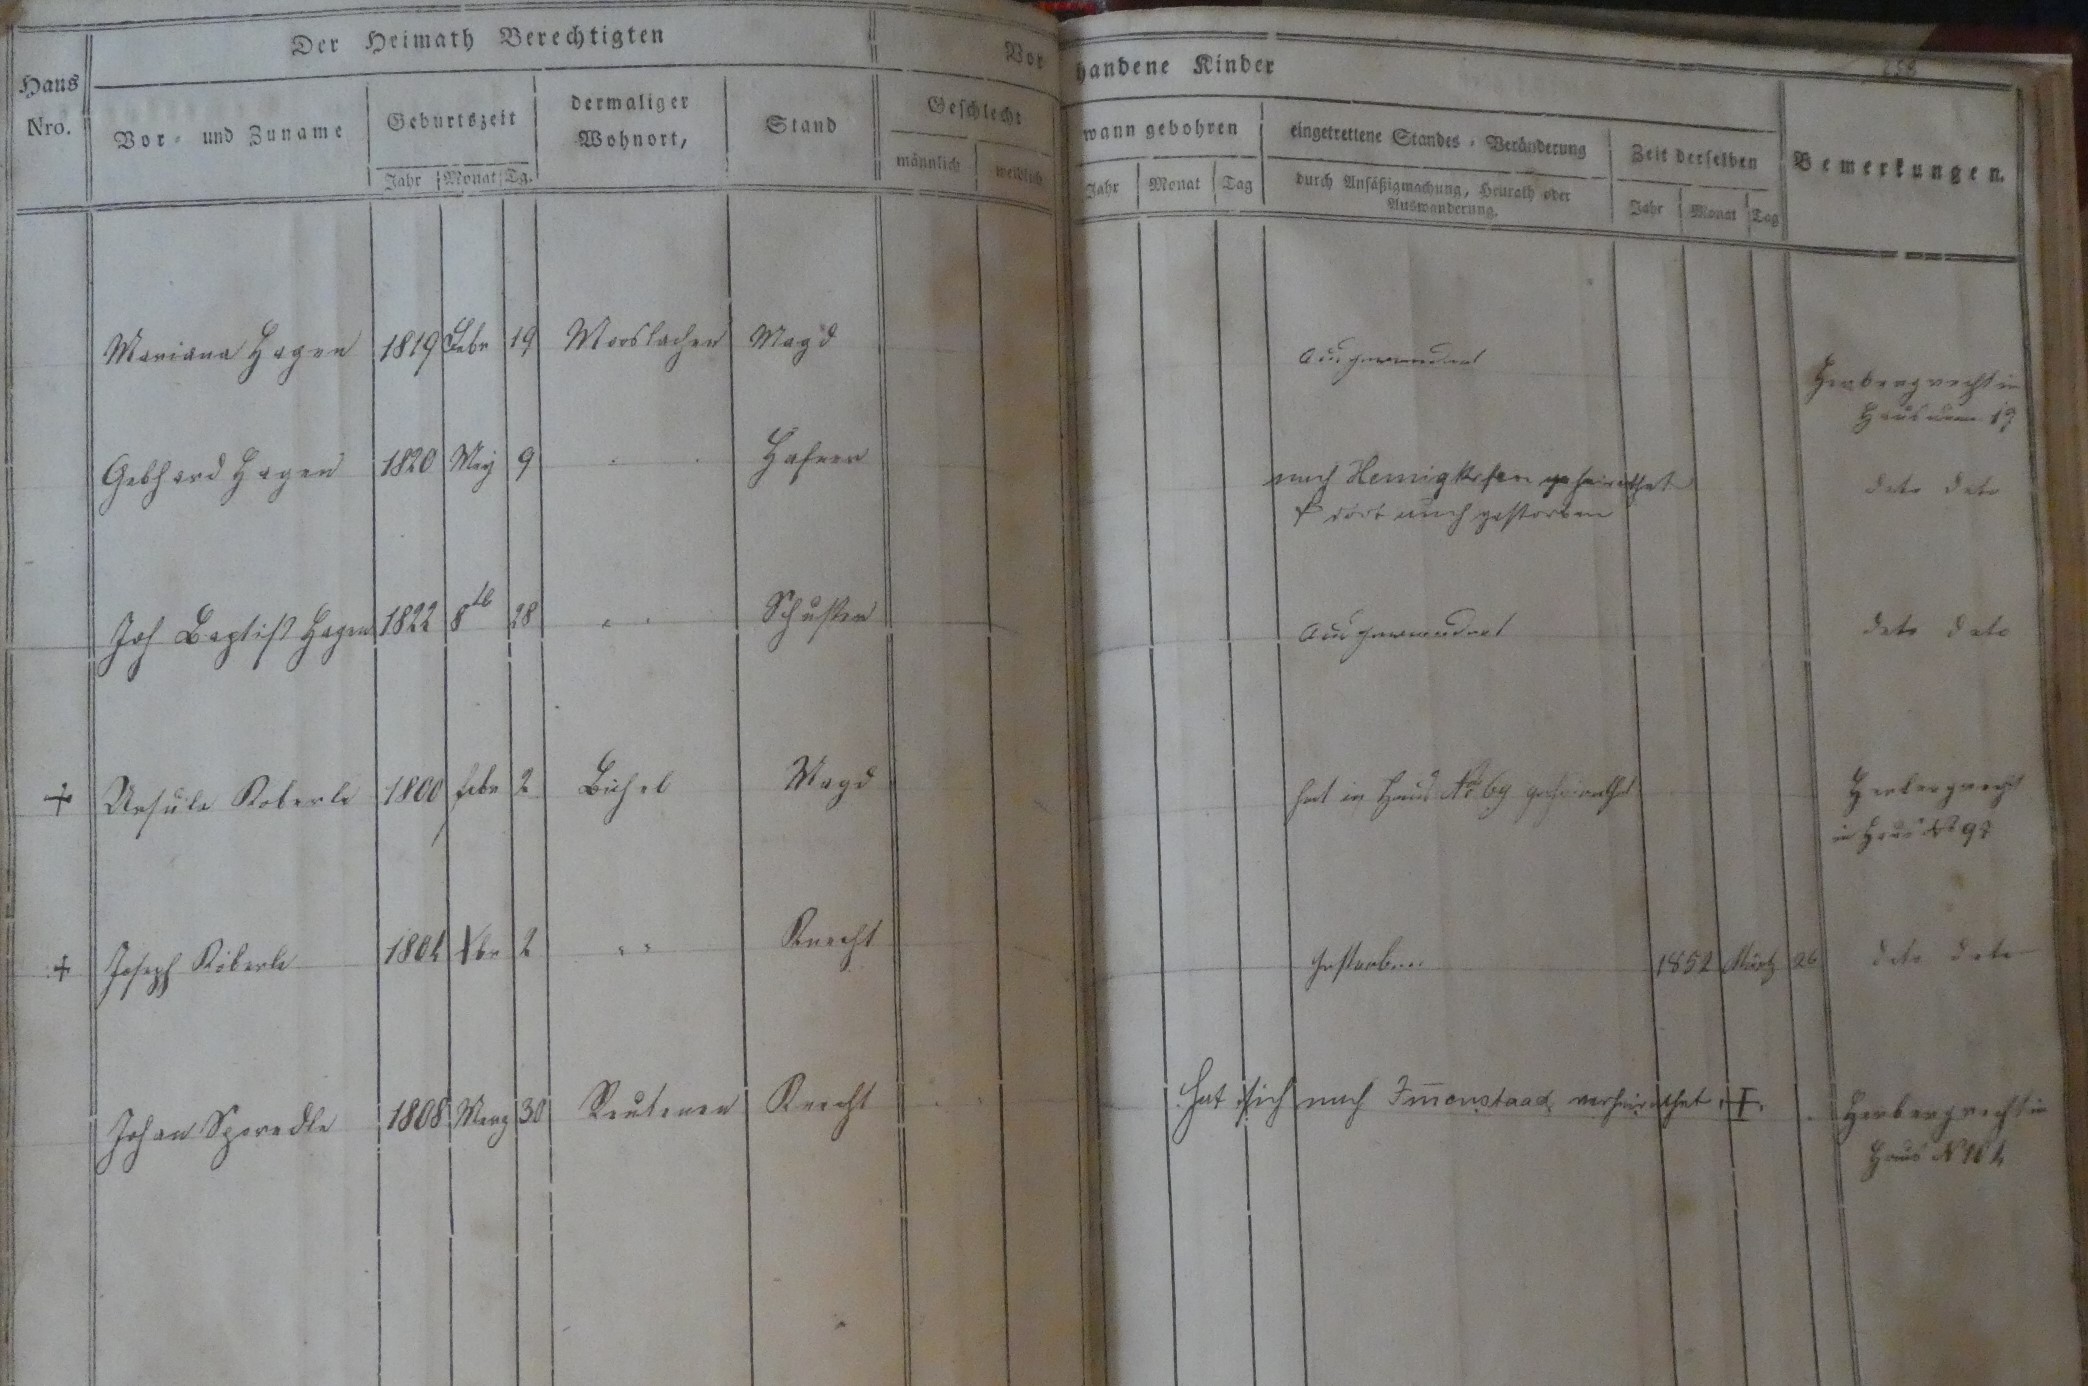 Der Heimath Berechtigten
Vorhandene Kinder
Haus Nro.
Vor- und Zuname
Geburtszeit
Jahr Monat Tg.
dermaliger Wohnort,
Stand
Geschlecht
männlich weiblich
wann gebohren
Jahr Monat Tag
eingetrettene Standes-Veränderung
durch Ansäßigmachung, Heurath oder
Auswanderung.
Zeit derselben
Jahr Monat Tag
Bemerkungen.
Mariana Hagen 1819 Febr 19 Mooslachen Magd ausgewandert Herbergrecht in
Haus
Gebhard Hagen 1820 Mey 9 " " Hafner nach Hemigkofen geheirathet deto deto
& dort auch gestorben
Joh Baptist Hagen 1822 8tb 28 " " Schuster ausgewandert deto deto
+ Ursula Koberle 1800 febr 2 Bichel Magd hat in Haus No 69 geheirathet Herbergrecht
in Haus No
+ Joseph Köberle 1804 Xbr 2 " " Knecht gestorben 1852 März 26 deto deto
Johan Sporedle 1808 Merz 30 Reutenen Knecht hat sich nach Im̄enstaad verheirathet . Herbergrecht in
Haus N 104